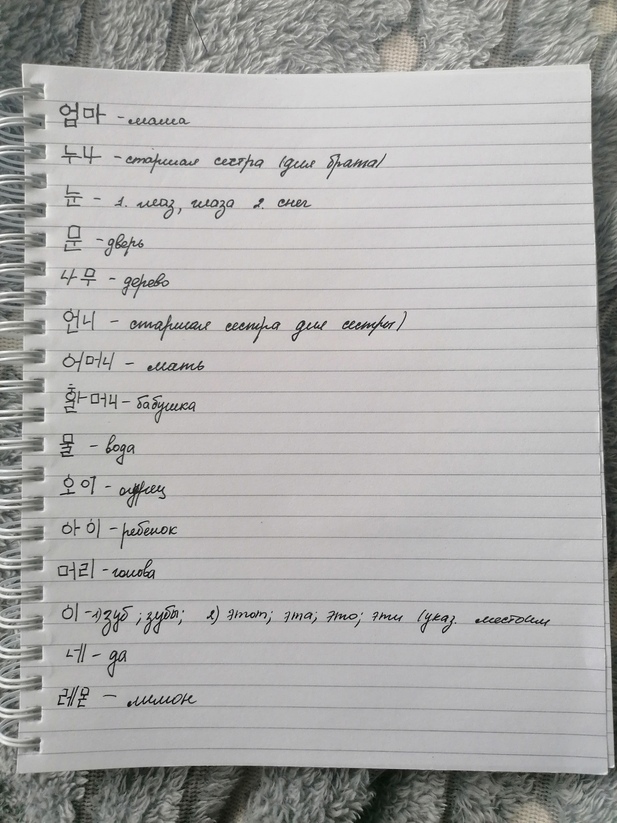 엄마 - мама
누나 - старшая сестра (для брата)
눈 - 1. глаз, глаза 2. снег
문 - дверь
나무 - дерево
언니 - старшая сестра для сестры)
어머니 - мать
할머니 - бабушка
물 - вода
오이 - огурец
아이 - ребенок
머리 - голова
이 - 1) зуб; зубы; 2) этот; эта; это; эти (указ. местоим
네 - да
레몬 - лимон